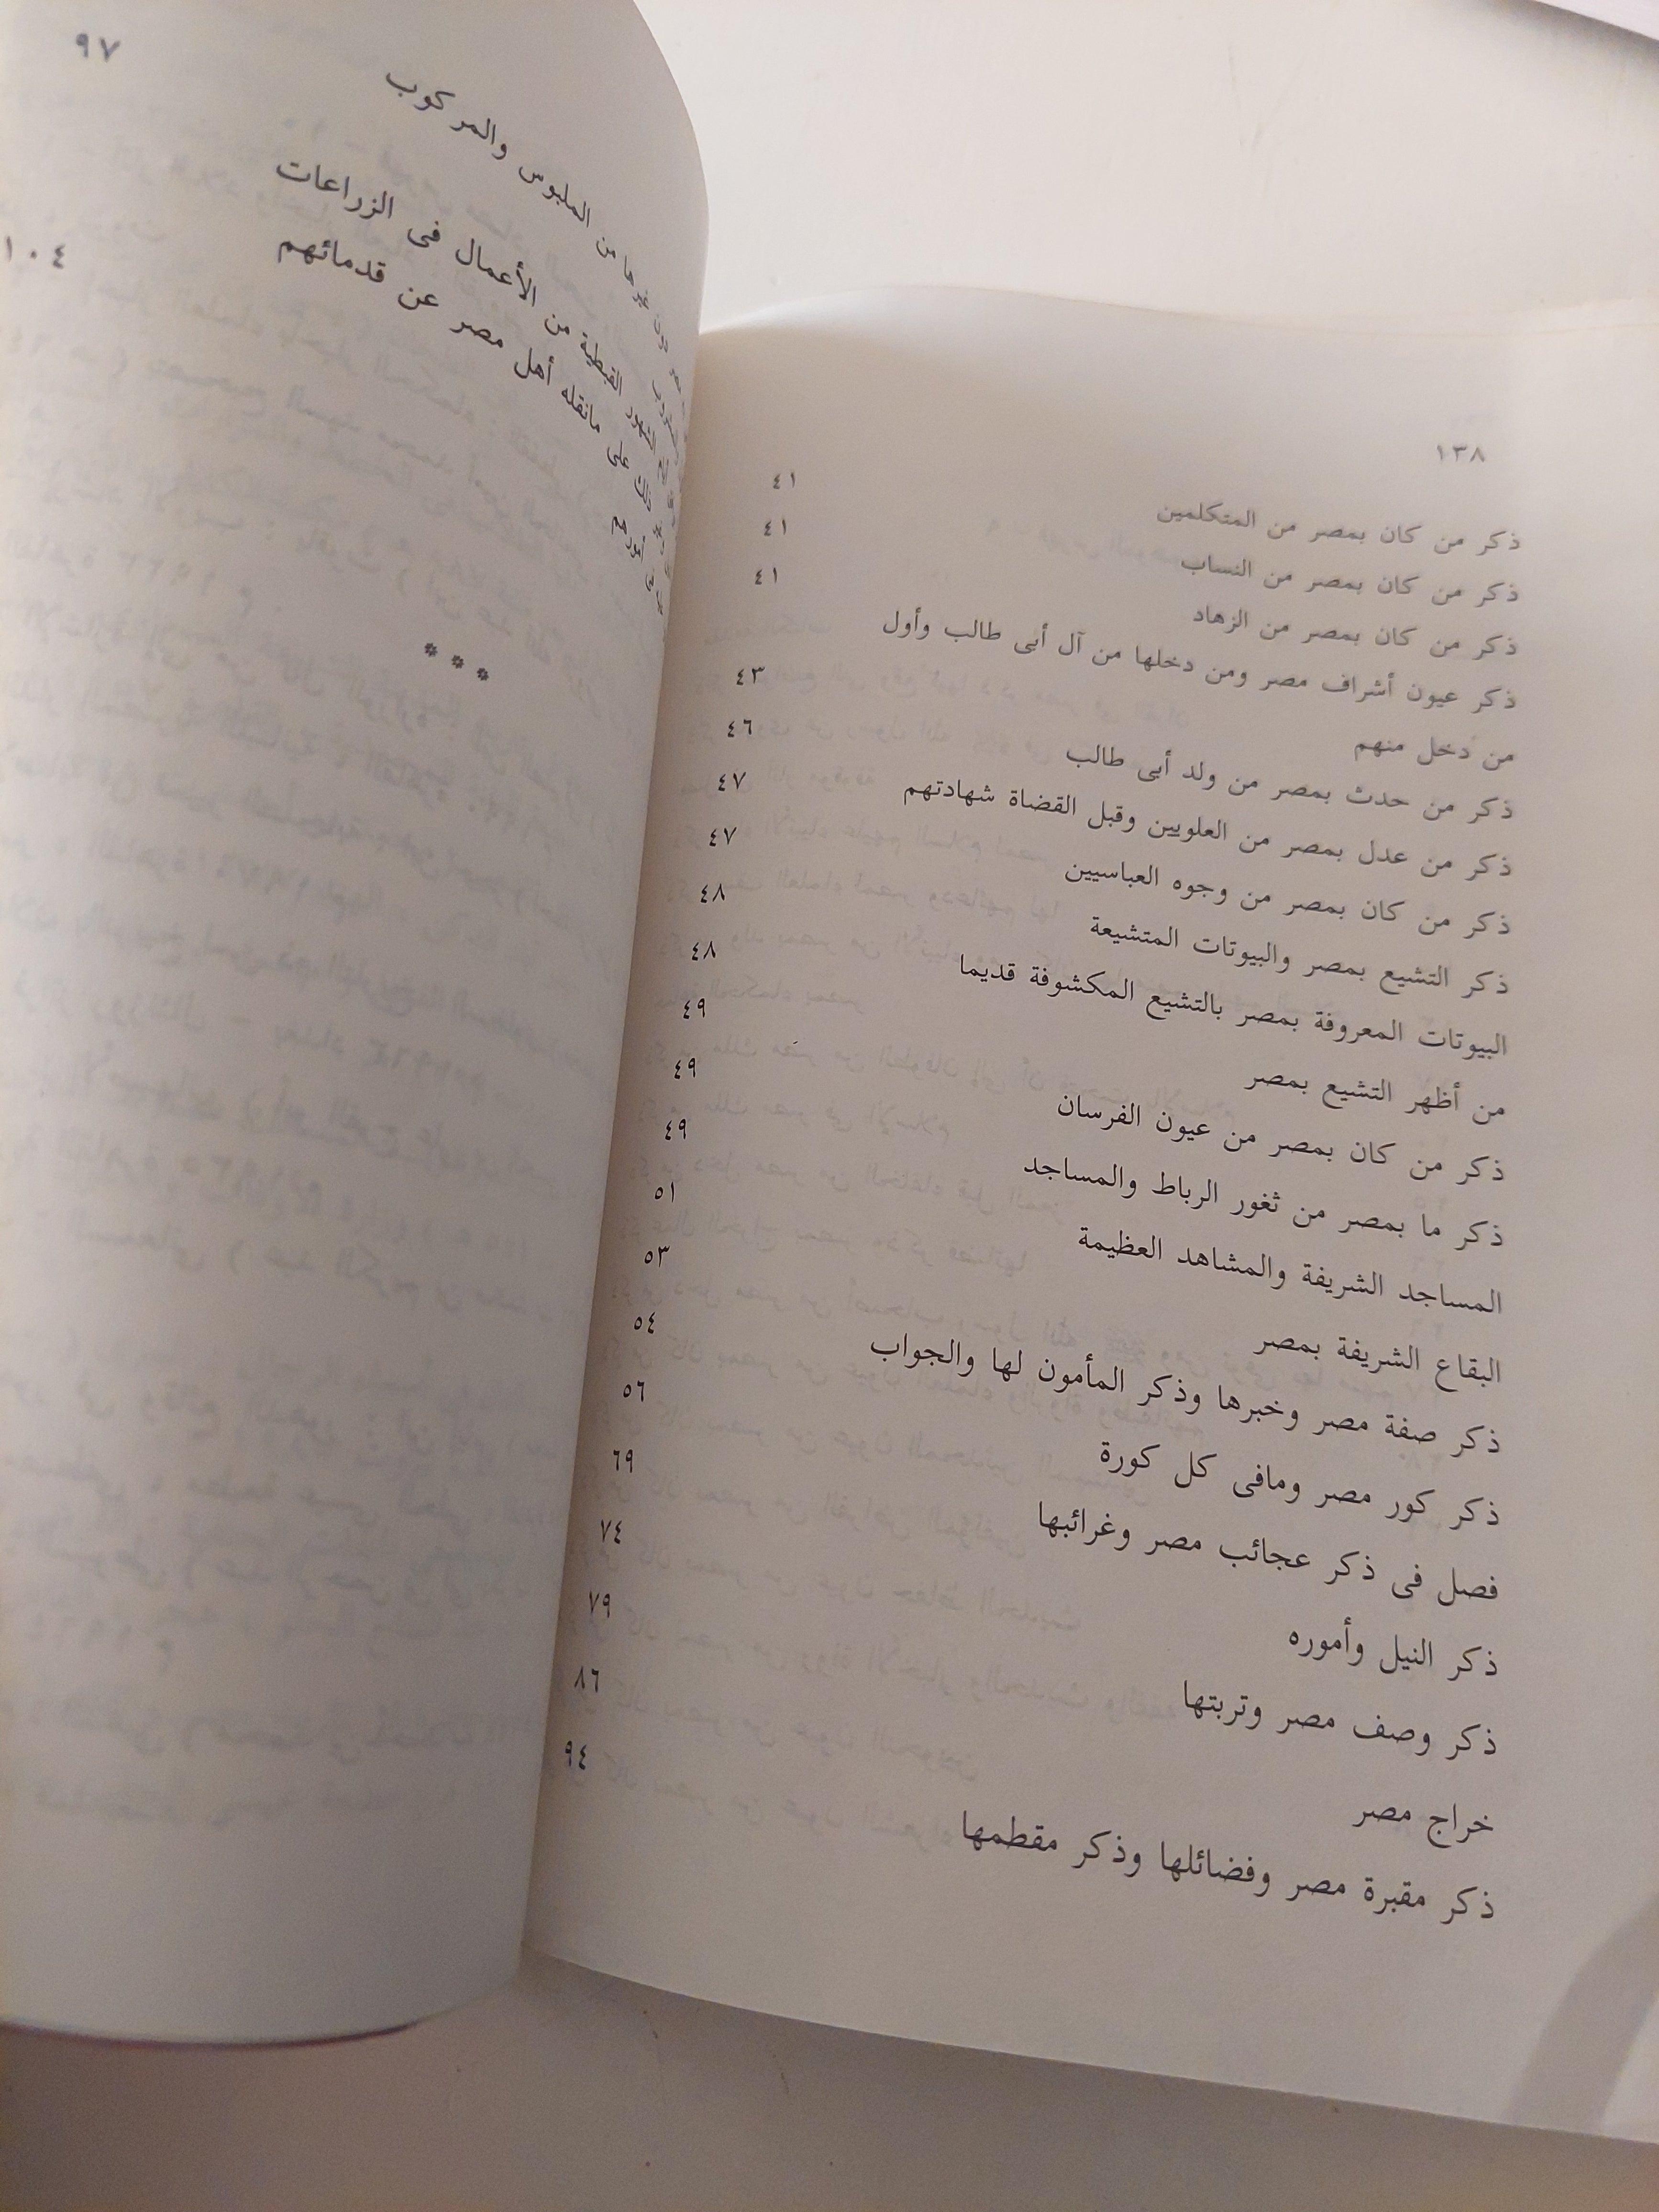 ١٣٨
ذكر من كان بمصر من المتكلمين ٤١
ذكر من كان بمصر من النساب ٤١
ذكر من كان بمصر من الزهاد ٤١
ذكر عيون أشراف مصر ومن دخلها من آل أبى طالب وأول
من دخل منهم ٤٣
ذكر من حدث بمصر من ولد أبى طالب ٤٦
ذكر من عدل بمصر من العلويين وقبل القضاة شهادتهم ٤٧
ذكر من كان بمصر من وجوه العباسيين ٤٧
ذكر التشيع بمصر والبيوتات المتشيعة ٤٨
البيوتات المعروفة بمصر بالتشيع المكشوفة قديما ٤٨
من أظهر التشيع بمصر ٤٩
ذكر من كان بمصر من عيون الفرسان ٤٩
ذكر ما بمصر من ثغور الرباط والمساجد ٤٩
المساجد الشريفة والمشاهد العظيمة ٥١
البقاع الشريفة بمصر ٥٣
ذكر صفة مصر وخبرها وذكر المأمون لها والجواب ٥٤
ذكر كور مصر ومافى كل كورة ٥٦
فصل فى ذكر عجائب مصر وغرائبها ٦٩
ذكر النيل وأموره ٧٤
ذكر وصف مصر وتربتها ٧٩
خراج مصر ٨٦
ذكر مقبرة مصر وفضائلها وذكر مقطمها ٩٤
غيرها من الملبوس والمركوب ٩٧
الشهور القبطية من الأعمال فى الزراعات
ذلك على مانقله أهل مصر عن قدمائهم
أمورهم ١٠٤
***